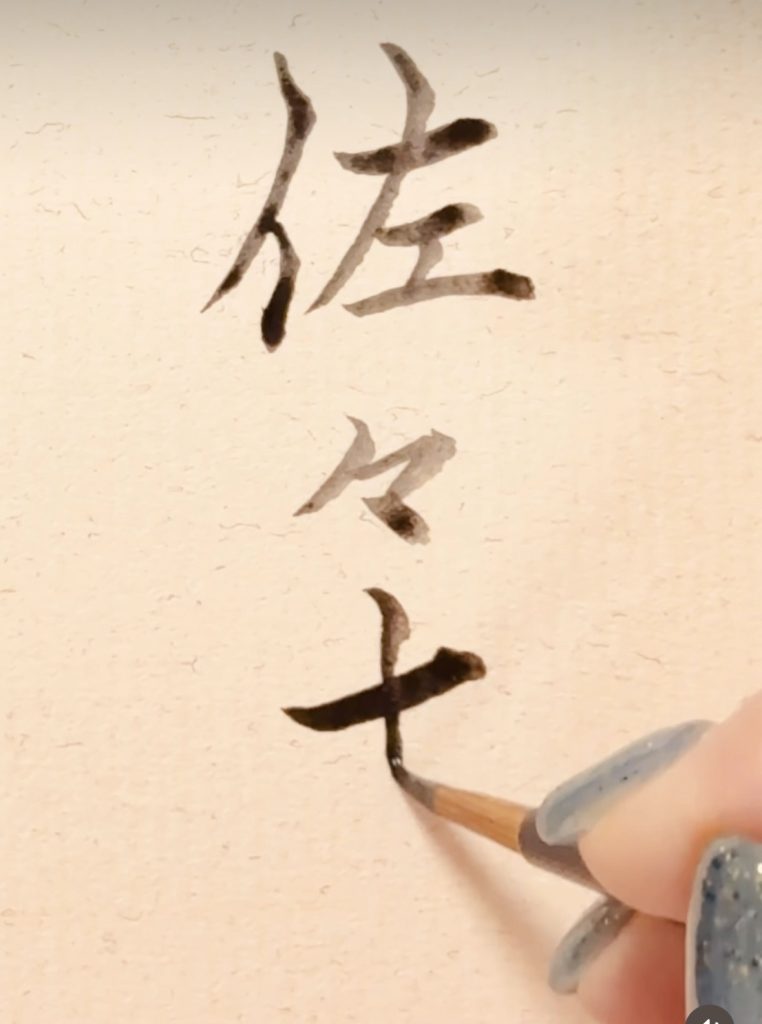 佐々十